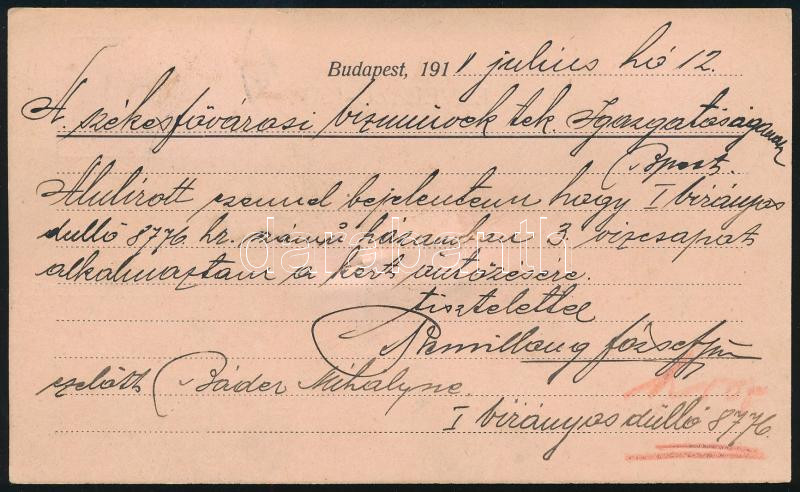 Budapest, 1911 julius hó 12.
A. székesfővárosi vizmüvek tek. Igazgatóságának
Bpest.
Alulirott ezennel bejelentem hogy I virányos
dülló 8776 hr. számú házamban 3 vizcsapat
alkalmaztam a kert öntözésére.
tisztelettel
József
ezelőtt Báder Mihályné.
I virányos dülló 8776.
darabanth